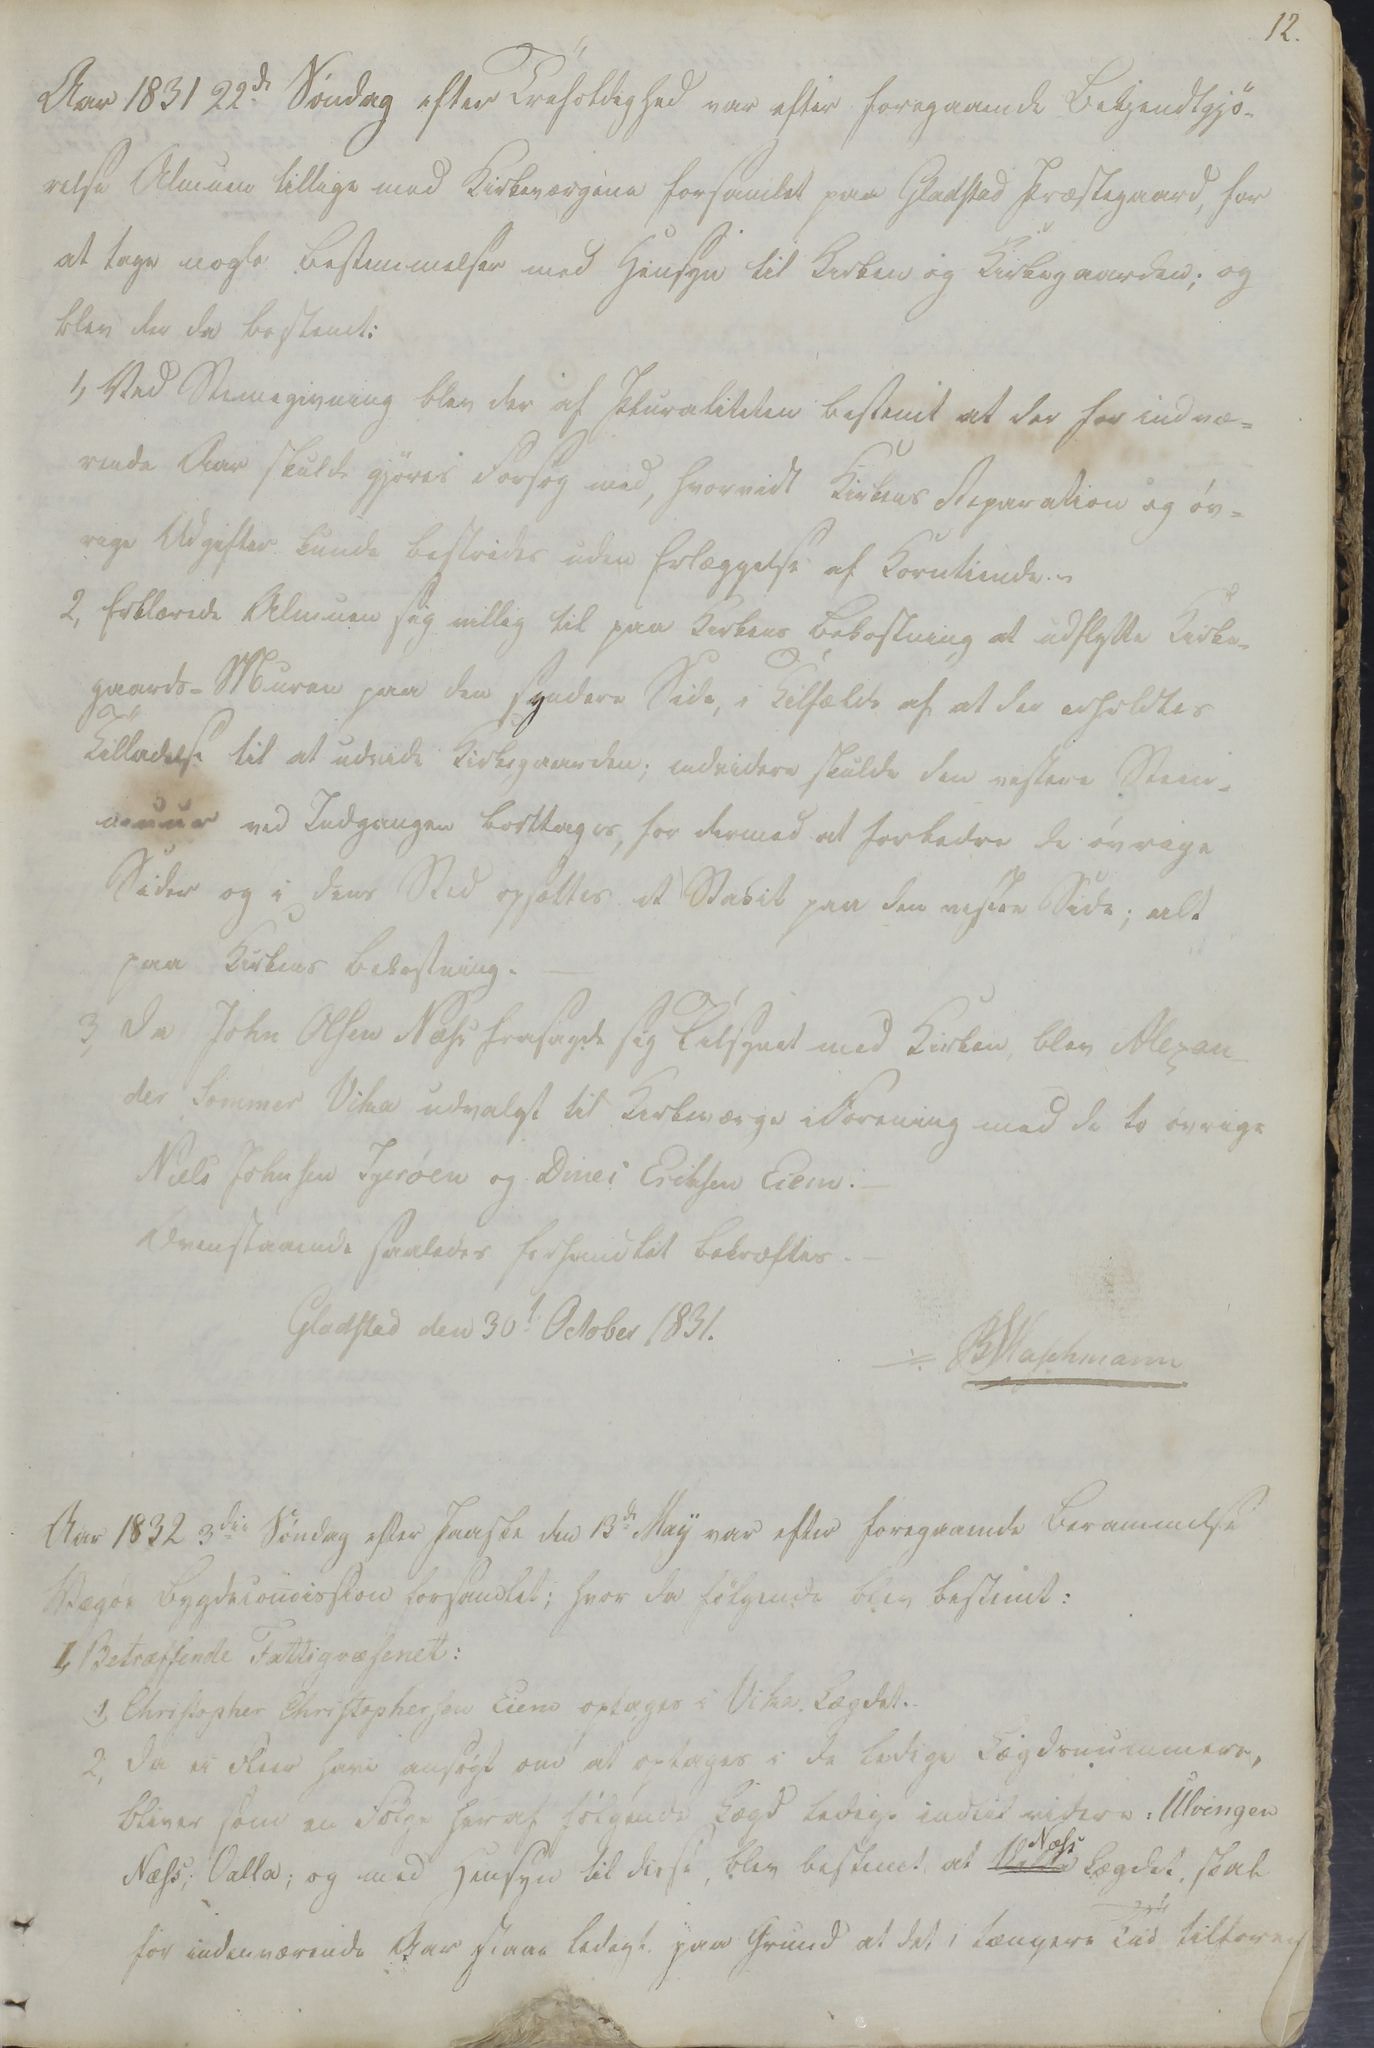 12.
Aar 1831 22de Søndag efter Trefoldighed var efter foregaaende Bekjendtgjø-
relse Almuen tillige med Kirkeværgene forsamlet paa Gladstad Præstegaard, for
at tage nogle Bestemmelser med Hensyn til Kirken og Kirkegaarden; og
blev der da bestemt:
1, Ved Stemegivning blev der af Pluraliteten bestemt at der for indvæ-
rende Aar skulde gjøres Forsøg med, hvorvidt Kirkens Reparation og øv-
rige Udgifter kunde bestrides uden Erlæggelse af Korntiende.
2, Erklærede Almuen sig villig til paa Kirkens Bekostning at udflytte Kirke-
gaards-Muren paa den syndere Side, i Tilfælde af at der erholdtes
Tilladelse til at udvide Kirkegaarden; endvidere skulde den vestere Steen-
muur ved Indgangen borttages, for dermed at forbedre de øvrige
Sider og i dens Sted opsættes et Stakit paa den vestre Side; alt
paa Kirkens Bekostning. —
3, Da John Olsen Næss frasagde sig Tilsynet med Kirken, blev Alexan-
der Sommer Vika udvalgt til Kirkeværge i Forening med de to øvrige
Niels Johnsen Igerøen og Dines Eriksen Eiem. —
Ovenstaaende saaledes forhandlet bekræftes. —
Gladstad den 30t October 1831.
Maschmann
Aar 1832 3die Søndag efter Paaske den 13de Maij var efter foregaaende Berammelse
Wegøe Bygdecommission forsamlet; hvor da følgende blev bestemt:
I, Betræffende Fattigvæsenet:
1, Christopher Christophersen Eiem optages i Vika Lægdet.
2, Da ei fleer have ansøgt om at optages i de ledige Lægdsnummere,
bliver som en Følge heraf følgende Lægd ledige indtil videre: Ulvingen
Næss; Valla; og med Hensyn til disse, blev bestemt at Valla Næss Lægdet, skal
for indeværende Aar staae ledigt paa Grund at det i længere Tid tilforen